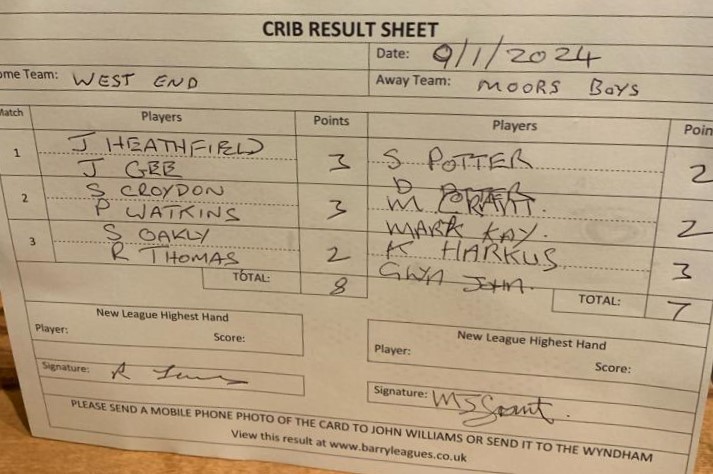 CRIB RESULT SHEET
Date: 9/1/2024
ome Team: WEST END
Away Team: MOORS BOYS
Match Players Points Players Poin
1 J HEATHFIELD 3 S POTTER 2
J GEE D
2 S CROYDON 3 M GRANT. 2
P WATKINS MARK KAY.
3 S OAKLY 2 K HARKUS 3
R THOMAS GWYN JOHN.
TOTAL: 8 TOTAL: 7
New League Highest Hand
Player:
Score:
New League Highest Hand
Player:
Score:
Signature: R
Signature: MSGrant.
PLEASE SEND A MOBILE PHONE PHOTO OF THE CARD TO JOHN WILLIAMS OR SEND IT TO THE WYNDHAM
View this result at www.barryleagues.co.uk